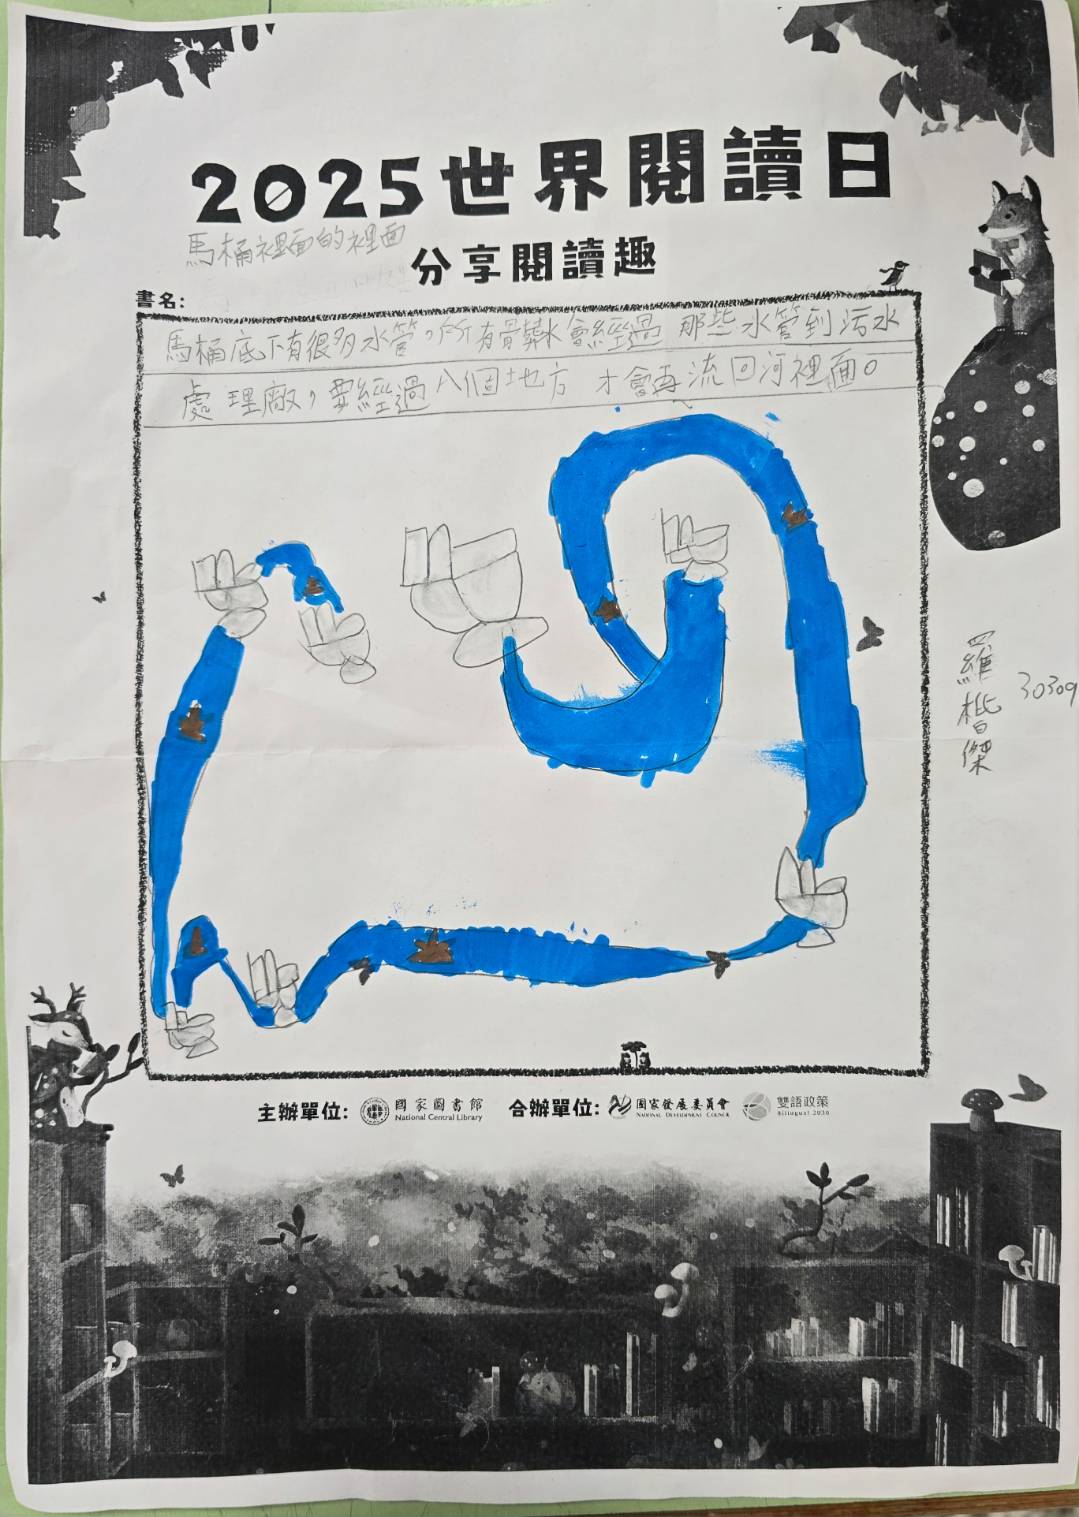 2025世界閱讀日
馬桶裡面的裡面
分享閱讀趣
書名:
馬桶底下有很多水管,所有骯髒水會經過那些水管到污水
處理廠,要經過八個地方才會再流回河裡面。
羅楷傑
30309
主辦單位: 國家圖書館 National Central Library 合辦單位: 國家發展委員會 National Development Council 雙語政策 Bilingual 2030